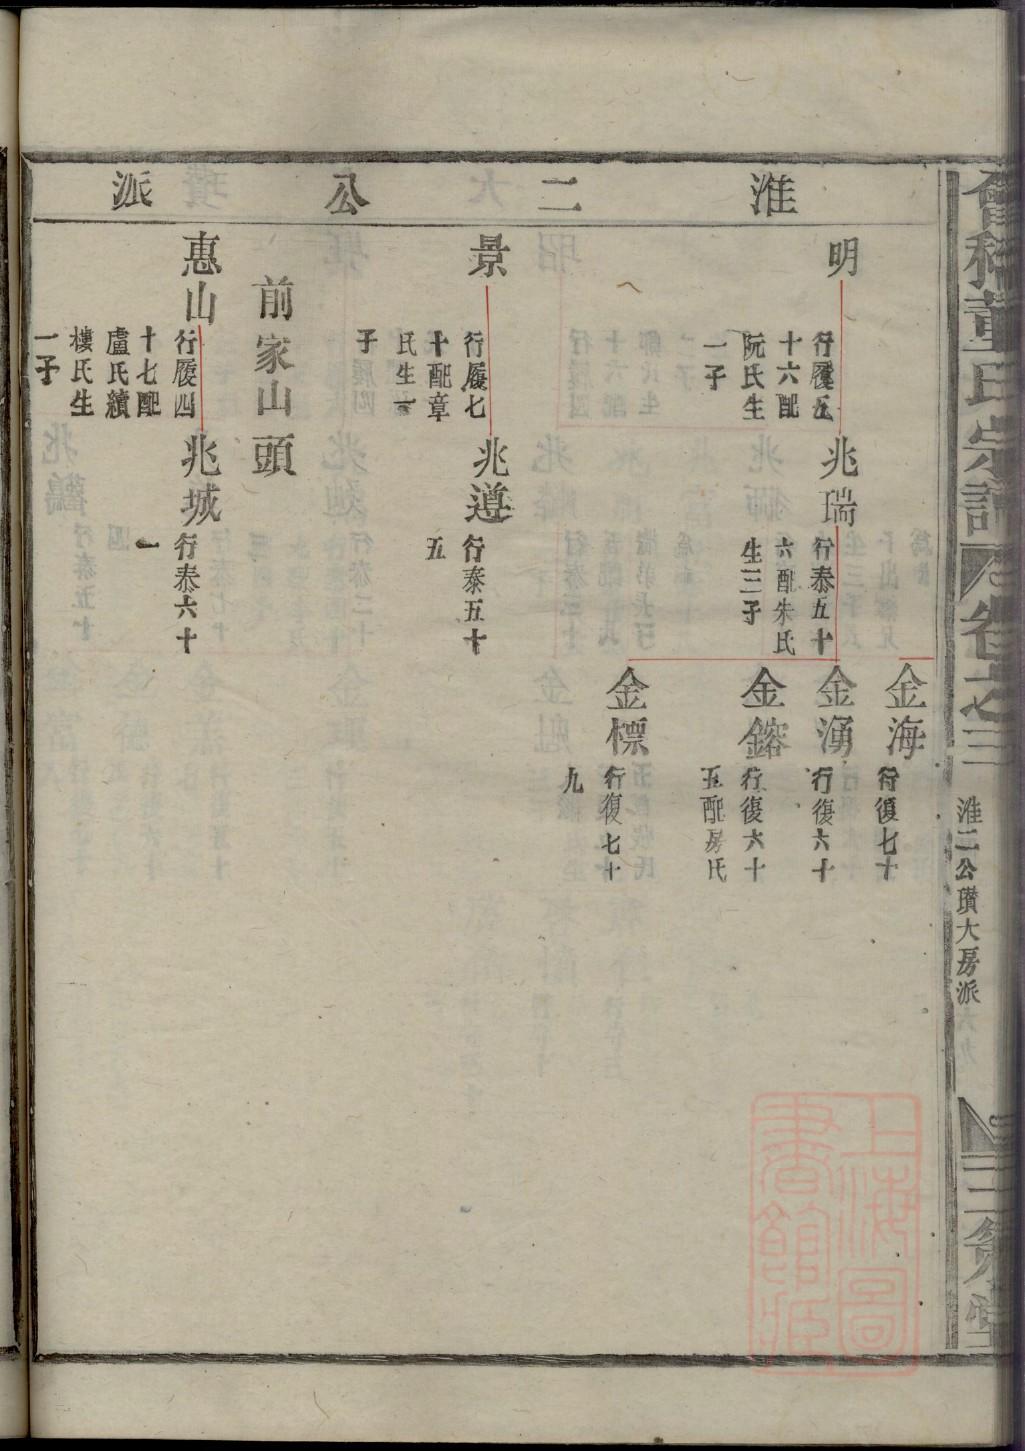 會稽董氏宗譜
卷之三
淮二公瓚大房派
三策堂
淮二公派
明
行履五
十六配
阮氏生
一子
兆瑞
行泰五十
六配朱氏
生三子
金海
行復七十
金湧
行復六十
金鎔
行復六十
五配房氏
金標
行復七十
九
景
行履七
十配章
氏生一
子
兆遵
行泰五十
五
前家山頭
惠山
行履四
十七配
盧氏續
樓氏生
一子
兆城
行泰六十
一
上海圖
書館藏